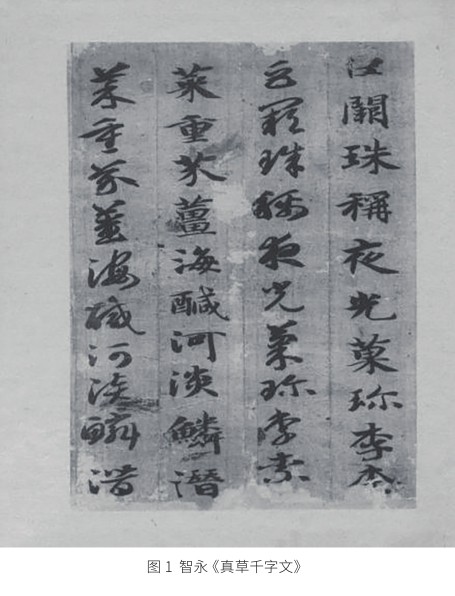 闕珠稱夜光菓珎李柰
巨闕珠稱夜光菓珎李柰
菜重芥薑海醎河淡鱗潛
菜重芥薑海醎河淡鱗潛
图 1 智永《真草千字文》